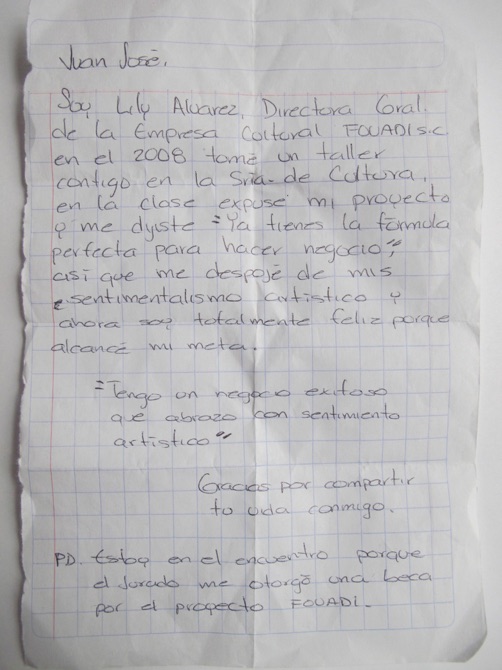 Juan José.
Soy Lily Alvarez, Directora Gral.
de la Empresa Cultural FOUADI S.C.
en el 2008 tomé un taller
contigo en la Sría. de Cultura,
en la clase expuse mi proyecto
y me dijiste "Ya tienes la fórmula
perfecta para hacer negocio",
así que me despojé de mis
sentimentalismo artístico y
ahora soy totalmente feliz porque
alcancé mi meta.
"Tengo un negocio exitoso
que abrazo con sentimiento
artístico"
Gracias por compartir
tu vida conmigo.
PD. Estoy en el encuentro porque
el Jurado me otorgó una beca
por el proyecto FOUADI.